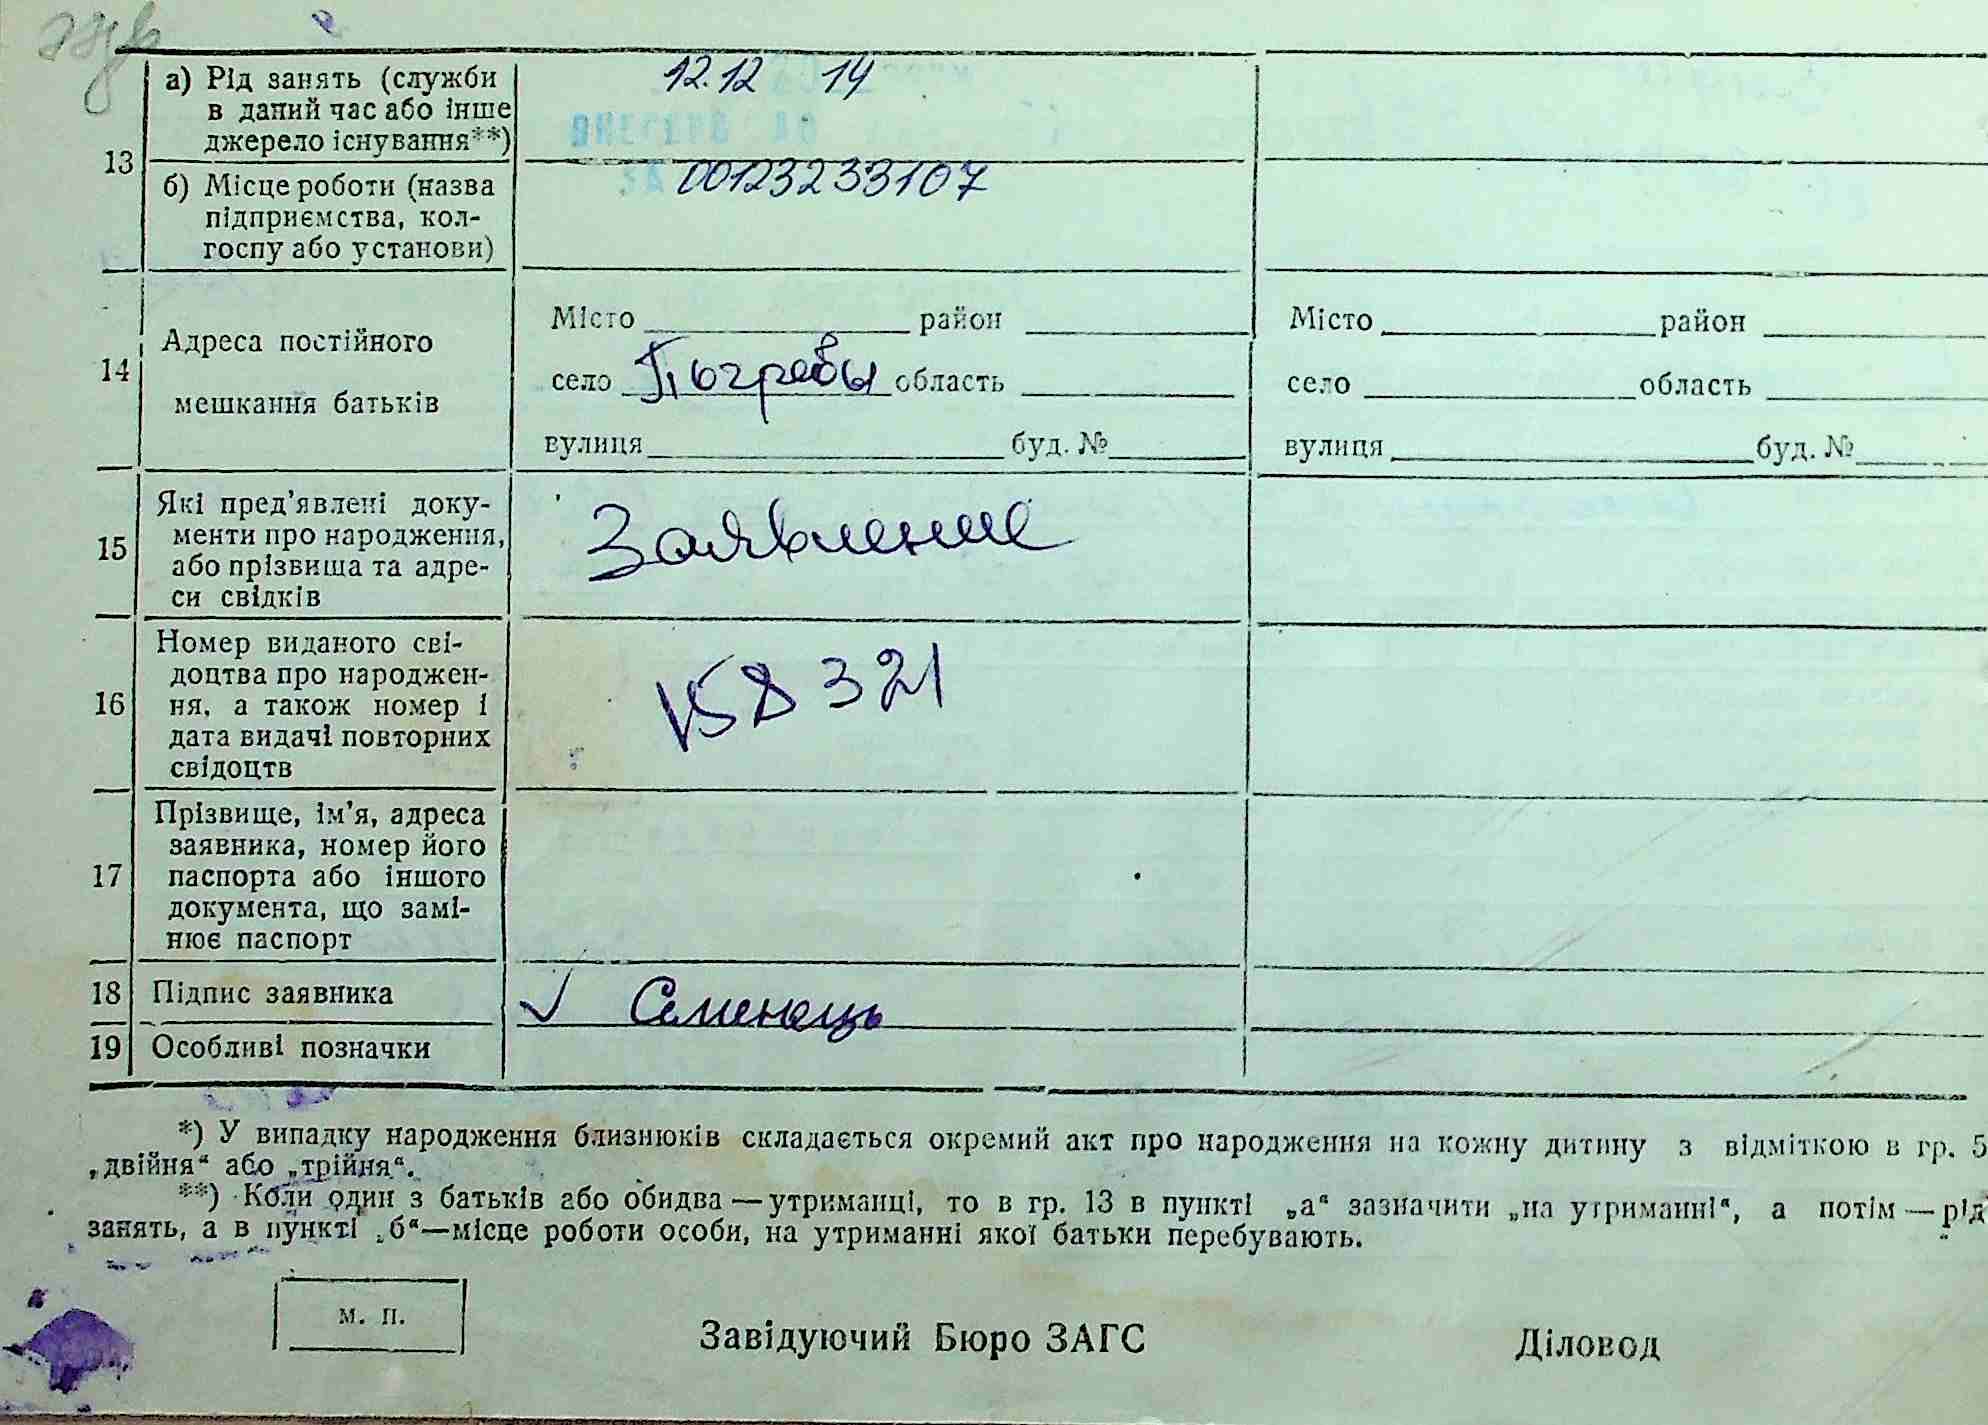 13
а) Рід занять (служби
в даний час або інше
джерело існування**)
12.12 14
б) Місце роботи (назва
підприємства, кол-
госпу або установи)
00123233107
14
Адреса постійного
мешкання батьків
Місто район
село Пограбы область
вулиця буд. №
Місто район
село область
вулиця буд. №
15
Які пред’явлені доку-
менти про народження,
або прізвища та адре-
си свідків
Заявление
16
Номер виданого сві-
доцтва про народжен-
ня, а також номер і
дата видачі повторних
свідоцтв
158321
17
Прізвище, ім’я, адреса
заявника, номер його
паспорта або іншого
документа, що замі-
нює паспорт
18 Підпис заявника
Семенець
19 Особливі позначки
*) У випадку народження близнюків складається окремий акт про народження на кожну дитину з відміткою в гр. 5
„двійня“ або „трійня“.
**) Коли один з батьків або обидва — утриманці, то в гр. 13 в пункті „а“ зазначити „на утриманні“, а потім — рід
занять, а в пункті „б“—місце роботи особи, на утриманні якої батьки перебувають.
м. п.
Завідуючий Бюро ЗАГС
Діловод